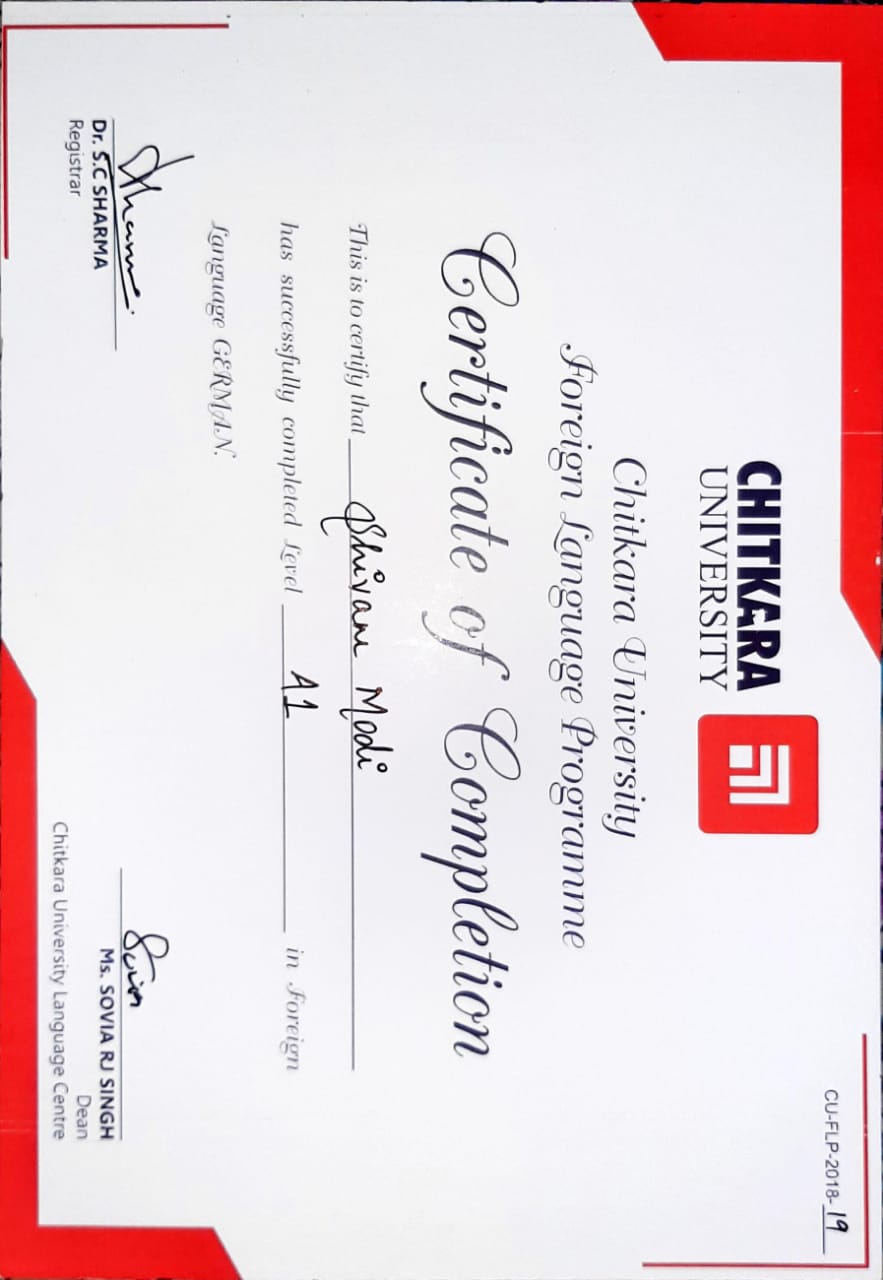 CU-FLP-2018-19
CHITKARA
UNIVERSITY
Chitkara University
Foreign Language Programme
Certificate of Completion
This is to certify that Shivani Modi
has successfully completed Level A1 in Foreign
Language GERMAN.
Dr. S.C SHARMA
Registrar
Ms. SOVIA RJ SINGH
Dean
Chitkara University Language Centre